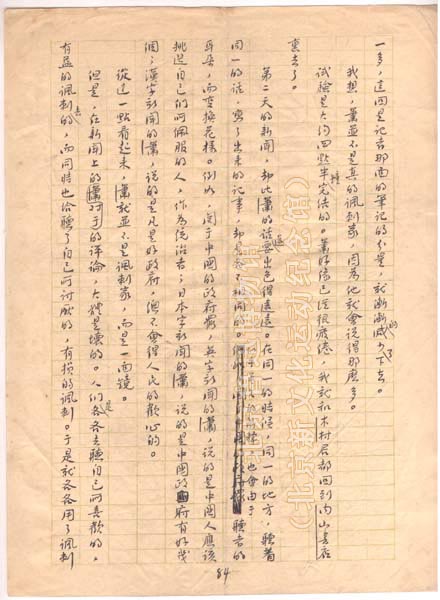 一多，這回是記者那面的筆記的分量，就漸漸的減少了下去。
我想，蕭並不是真的諷刺家，因為他就會說得那麼多。
試驗是大約四點半鐘完結的。蕭好像已經很疲倦，我就和木村君都回到內山書店
裏去了。
第二天的新聞，却比蕭的話還要出色得遠遠。在同一的時候，同一的地方，聽着
同一的話，寫了出來的記事，却是各不相同的。也會由于聽者的
耳朵，而變換花樣。例如，關于中國的政府罷，英字新聞的蕭，說的是中國人應該
挑選自己們所佩服的人，作為統治者；日本字新聞的蕭，說的是中國政府有好幾
個；漢字新聞的蕭，說的是凡是好政府，總不會得人民的歡心的。
從這一點看起來，蕭就並不是諷刺家，而是一面鏡。
但是，在新聞上的對于蕭的評論，大體是壞的。人們是各各去聽自己所喜歡的，
有益的諷刺去的，而同時也給聽了自己所討厭的，有損的諷刺。于是就各各用了諷刺
84
（北京新文化运动纪念馆）